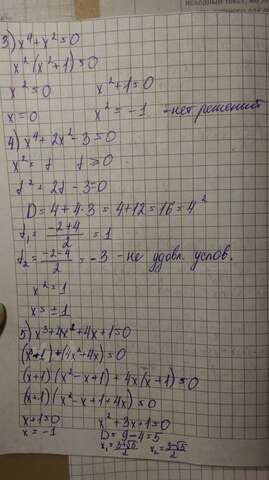 3) x⁴ + x² = 0
x² (x² + 1) = 0
x² = 0 x² + 1 = 0
x = 0 x² = -1 - нет решений
4) x⁴ + 2x² - 3 = 0
x² = t t ≥ 0
t² + 2t - 3 = 0
D = 4 + 4·3 = 4 + 12 = 16 = 4²
t₁ = (-2+4)/2 = 1
t₂ = (-2-4)/2 = -3 - не удовл. услов.
x² = 1
x = ± 1
5) x³ + 4x² + 4x + 1 = 0
(x³+1) + (4x² + 4x) = 0
(x+1) (x² - x + 1) + 4x(x+1) = 0
(x+1) (x² - x + 1 + 4x) = 0
x + 1 = 0 x² + 3x + 1 = 0
x = -1 D = 9 - 4 = 5